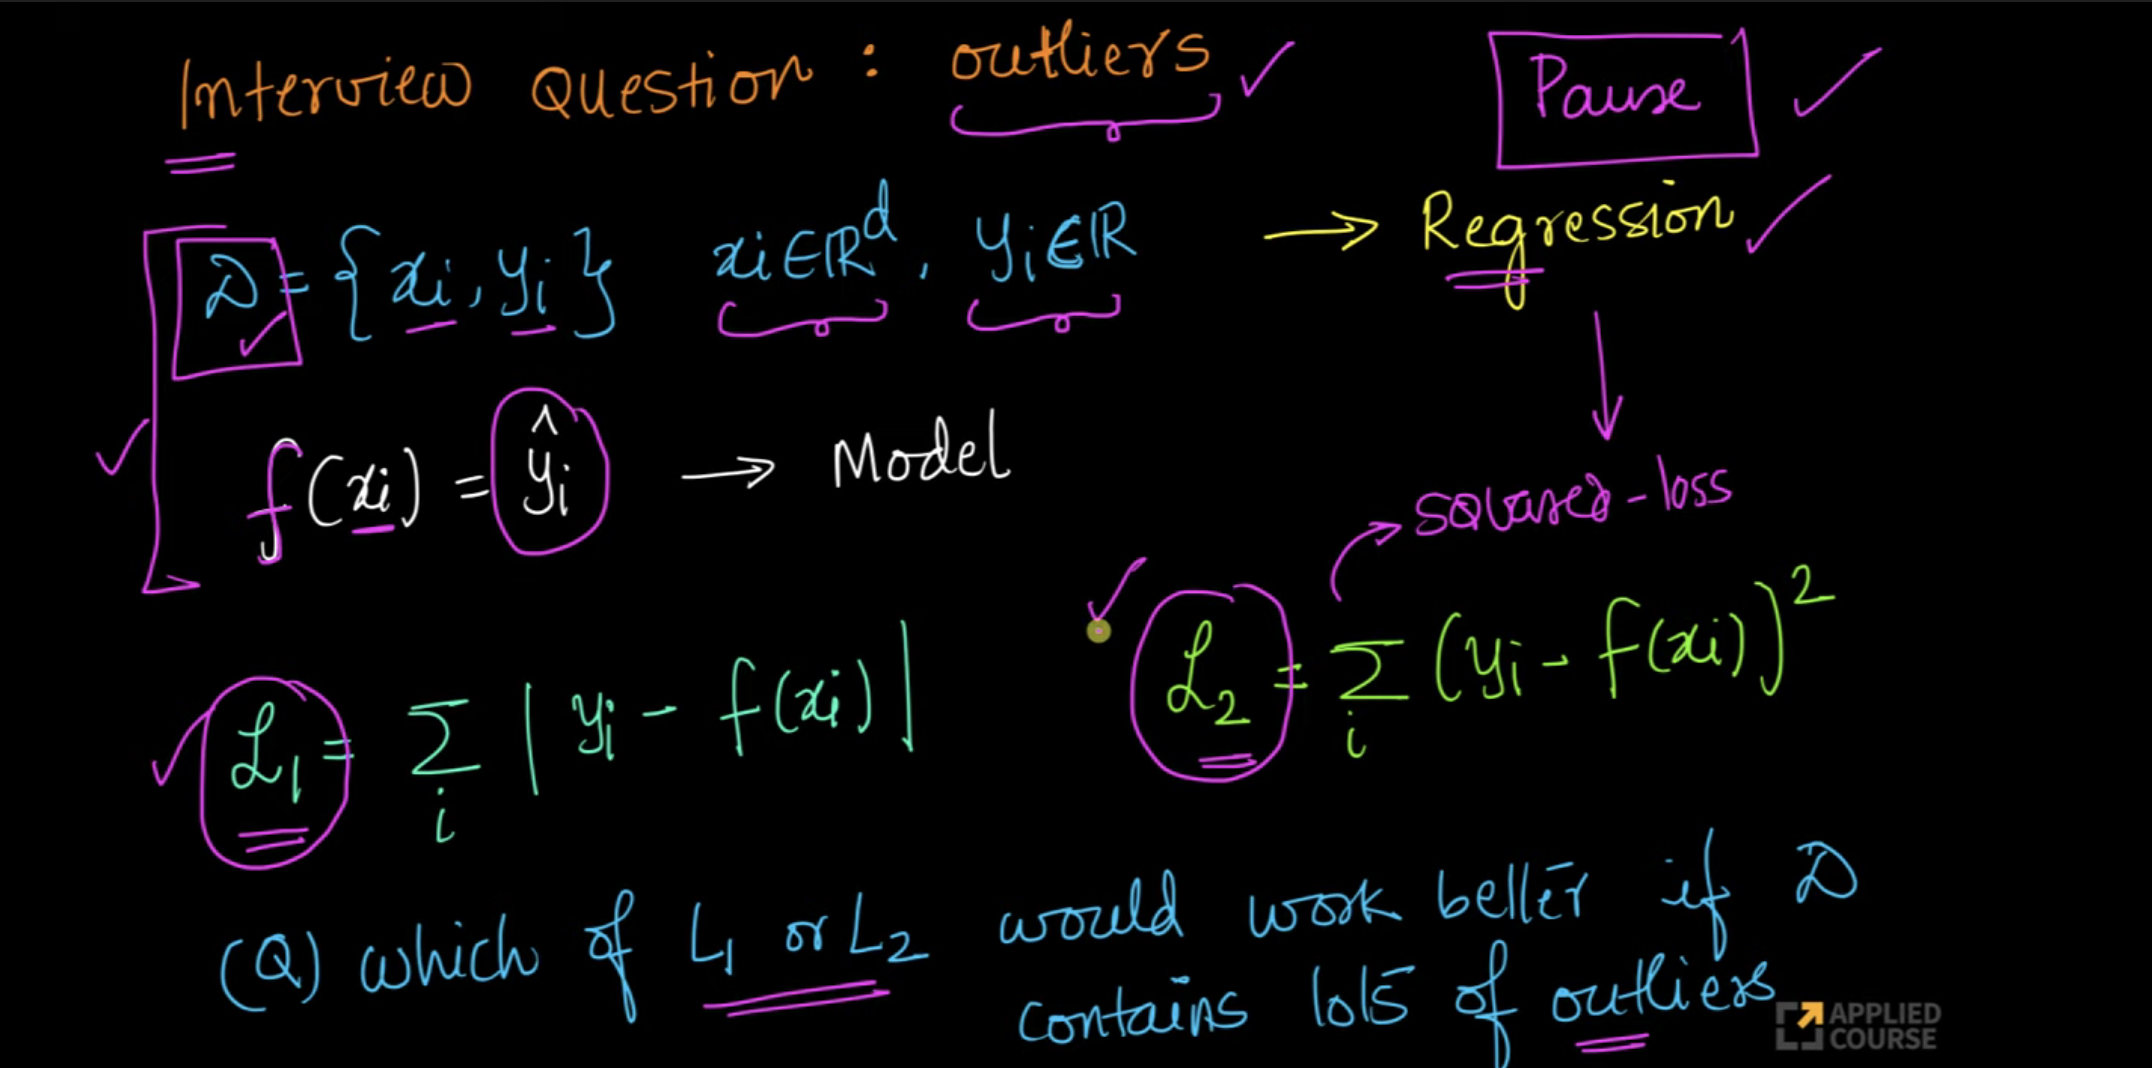 Interview Question : outliers
Pause
D = {xi, yi} xi∈ℝ^d, yi∈ℝ → Regression
f(xi) = ŷi → Model
squared-loss
L1 = Σ_i |yi - f(xi)|
L2 = Σ_i (yi - f(xi))^2
(Q) which of L1 or L2 would work better if D
contains lots of outliers
APPLIED
COURSE